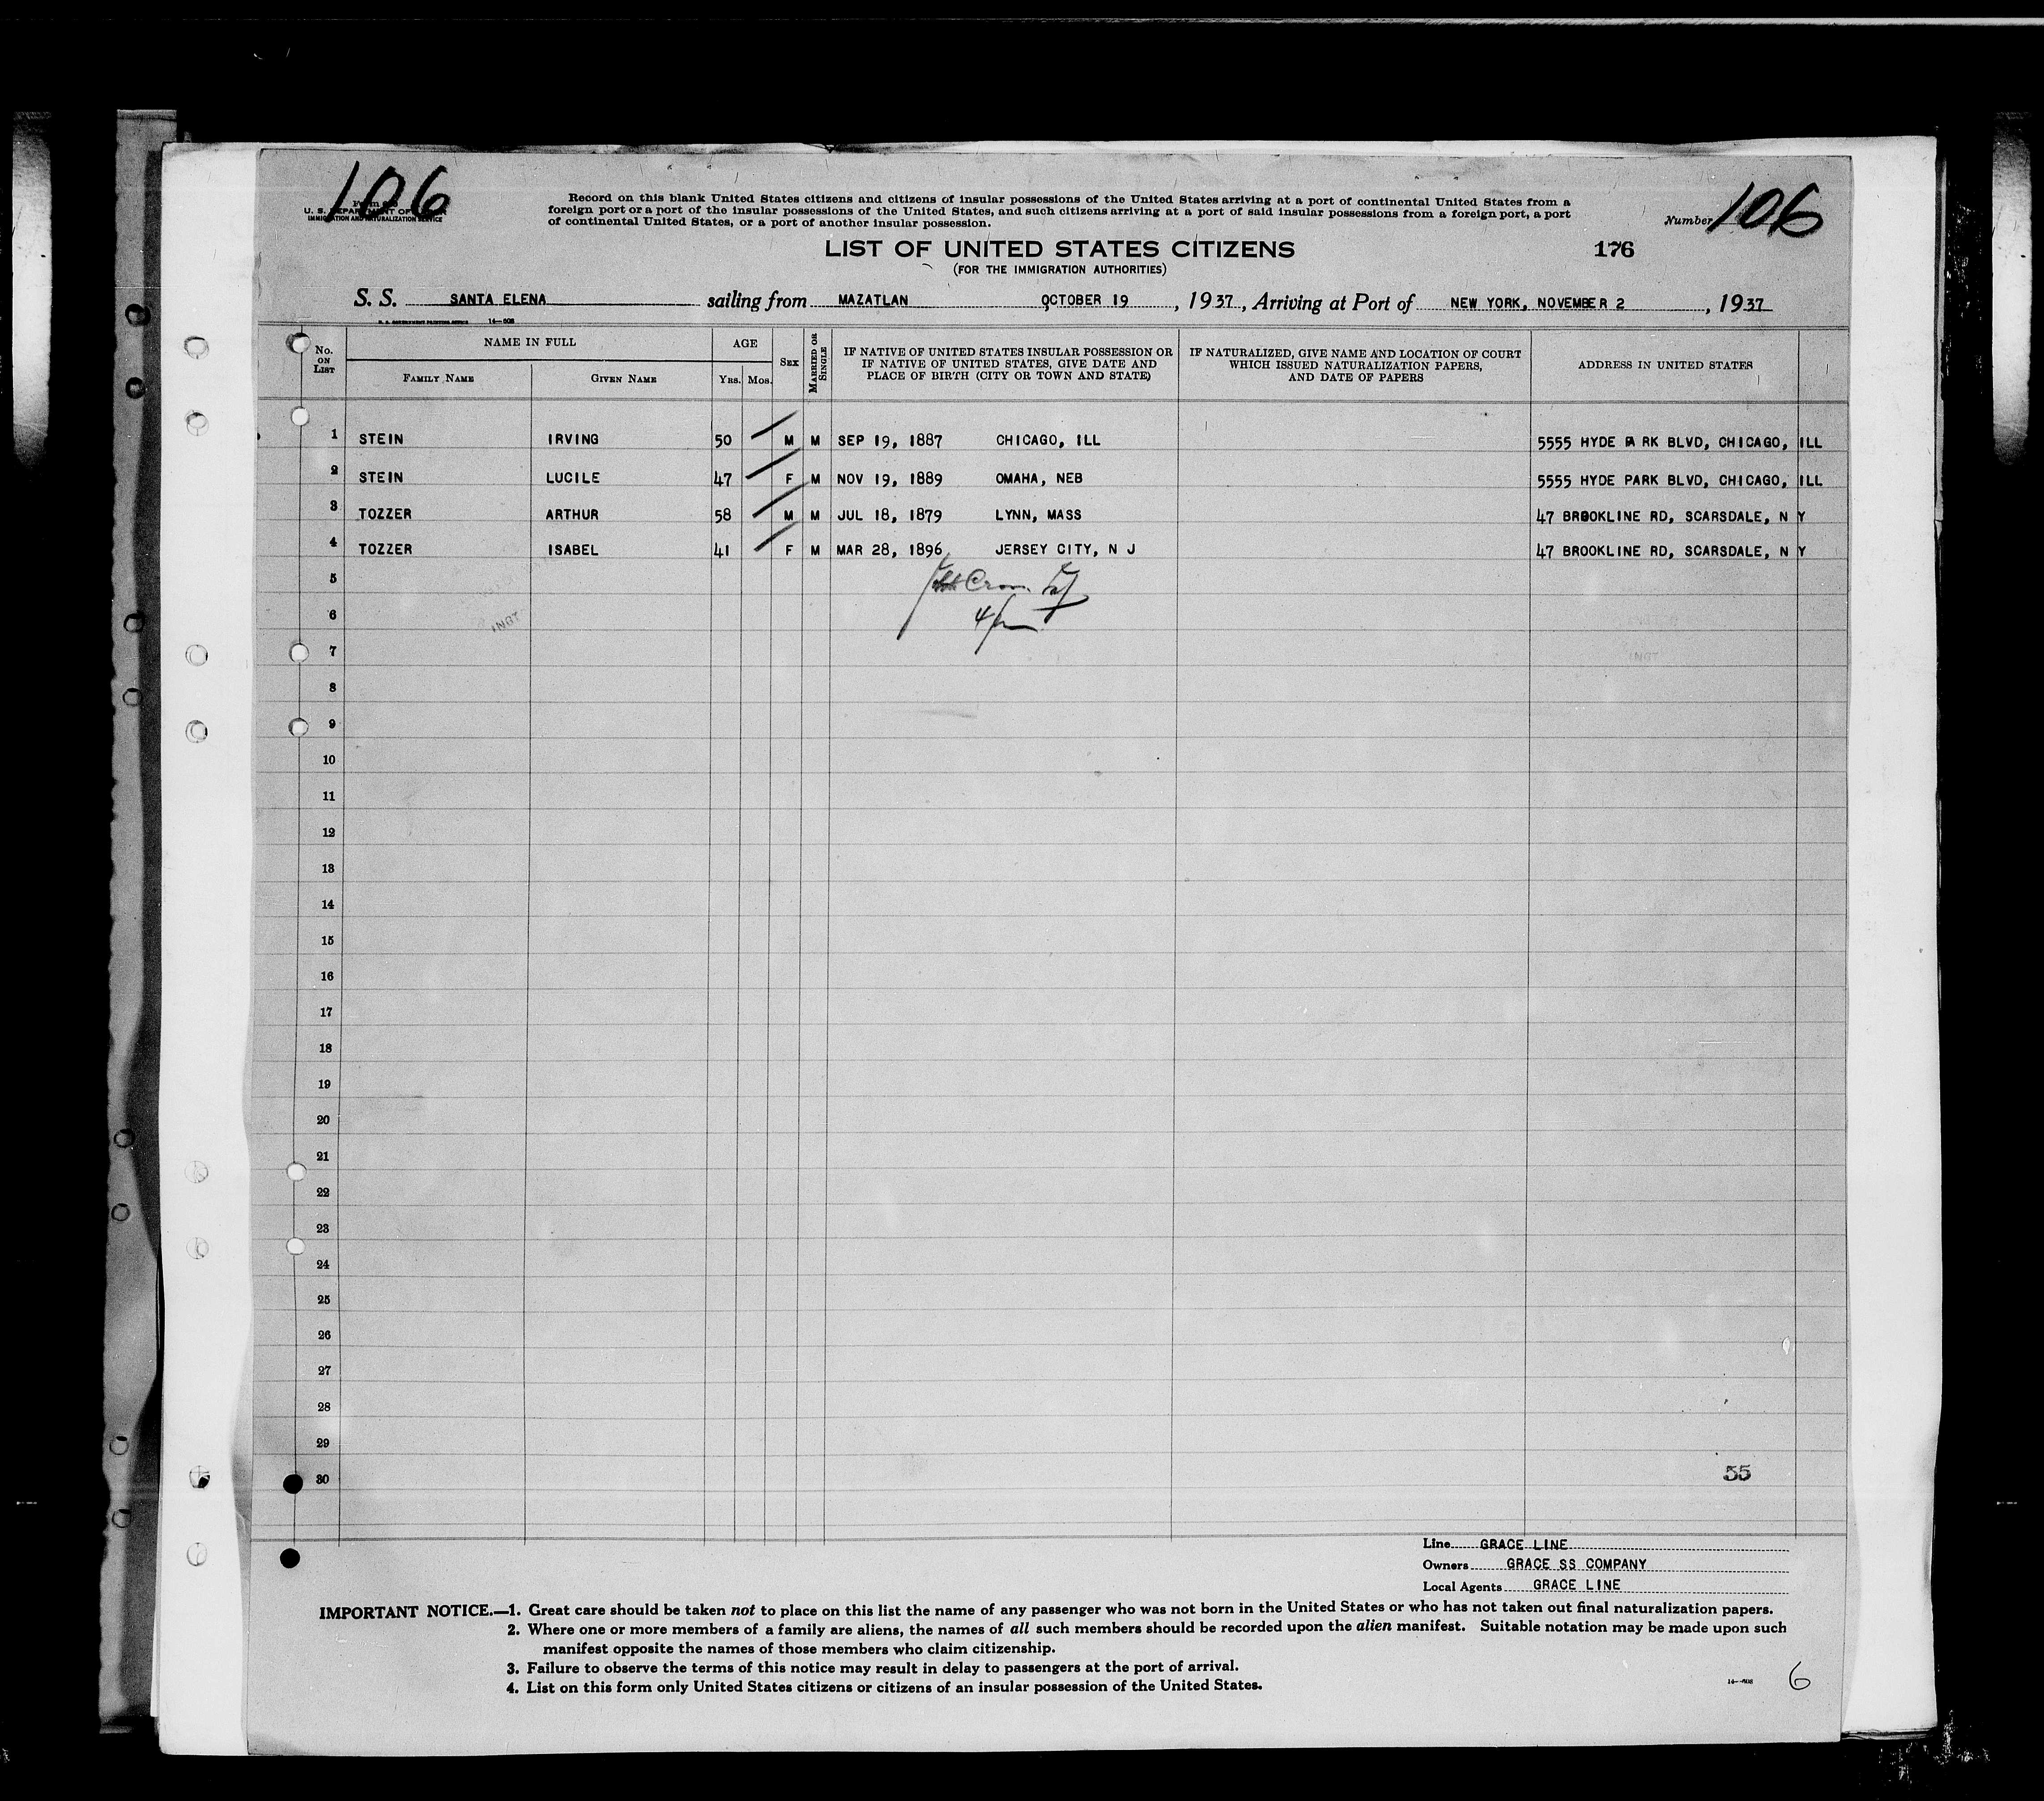 106
U. S. DEPARTMENT OF LABOR
IMMIGRATION AND NATURALIZATION SERVICE
Record on this blank United States citizens and citizens of insular possessions of the United States arriving at a port of continental United States from a
foreign port or a port of the insular possessions of the United States, and such citizens arriving at a port of said insular possessions from a foreign port, a port
of continental United States, or a port of another insular possession.
Number 106
LIST OF UNITED STATES CITIZENS
176
(FOR THE IMMIGRATION AUTHORITIES)
S. S. SANTA ELENA sailing from MAZATLAN OCTOBER 19, 1937, Arriving at Port of NEW YORK, NOVEMBER 2, 1937
U. S. GOVERNMENT PRINTING OFFICE 14—608
No. ON LIST
NAME IN FULL
FAMILY NAME
GIVEN NAME
AGE
YRS. MOS.
SEX
MARRIED OR SINGLE
IF NATIVE OF UNITED STATES INSULAR POSSESSION OR
IF NATIVE OF UNITED STATES, GIVE DATE AND
PLACE OF BIRTH (CITY OR TOWN AND STATE)
IF NATURALIZED, GIVE NAME AND LOCATION OF COURT
WHICH ISSUED NATURALIZATION PAPERS,
AND DATE OF PAPERS
ADDRESS IN UNITED STATES
1 STEIN IRVING 50 M M SEP 19, 1887 CHICAGO, ILL 5555 HYDE PA RK BLVD, CHICAGO, ILL
2 STEIN LUCILE 47 F M NOV 19, 1889 OMAHA, NEB 5555 HYDE PARK BLVD, CHICAGO, ILL
3 TOZZER ARTHUR 58 M M JUL 18, 1879 LYNN, MASS 47 BROOKLINE RD, SCARSDALE, N Y
4 TOZZER ISABEL 41 F M MAR 28, 1896 JERSEY CITY, N J 47 BROOKLINE RD, SCARSDALE, N Y
5
6
7
8
9
10
11
12
13
14
15
16
17
18
19
20
21
22
23
24
25
26
27
28
29
30
55
Line GRACE LINE
Owners GRACE SS COMPANY
Local Agents GRACE LINE
IMPORTANT NOTICE.—1. Great care should be taken not to place on this list the name of any passenger who was not born in the United States or who has not taken out final naturalization papers.
2. Where one or more members of a family are aliens, the names of all such members should be recorded upon the alien manifest. Suitable notation may be made upon such
manifest opposite the names of those members who claim citizenship.
3. Failure to observe the terms of this notice may result in delay to passengers at the port of arrival.
4. List on this form only United States citizens or citizens of an insular possession of the United States.
14—608
6